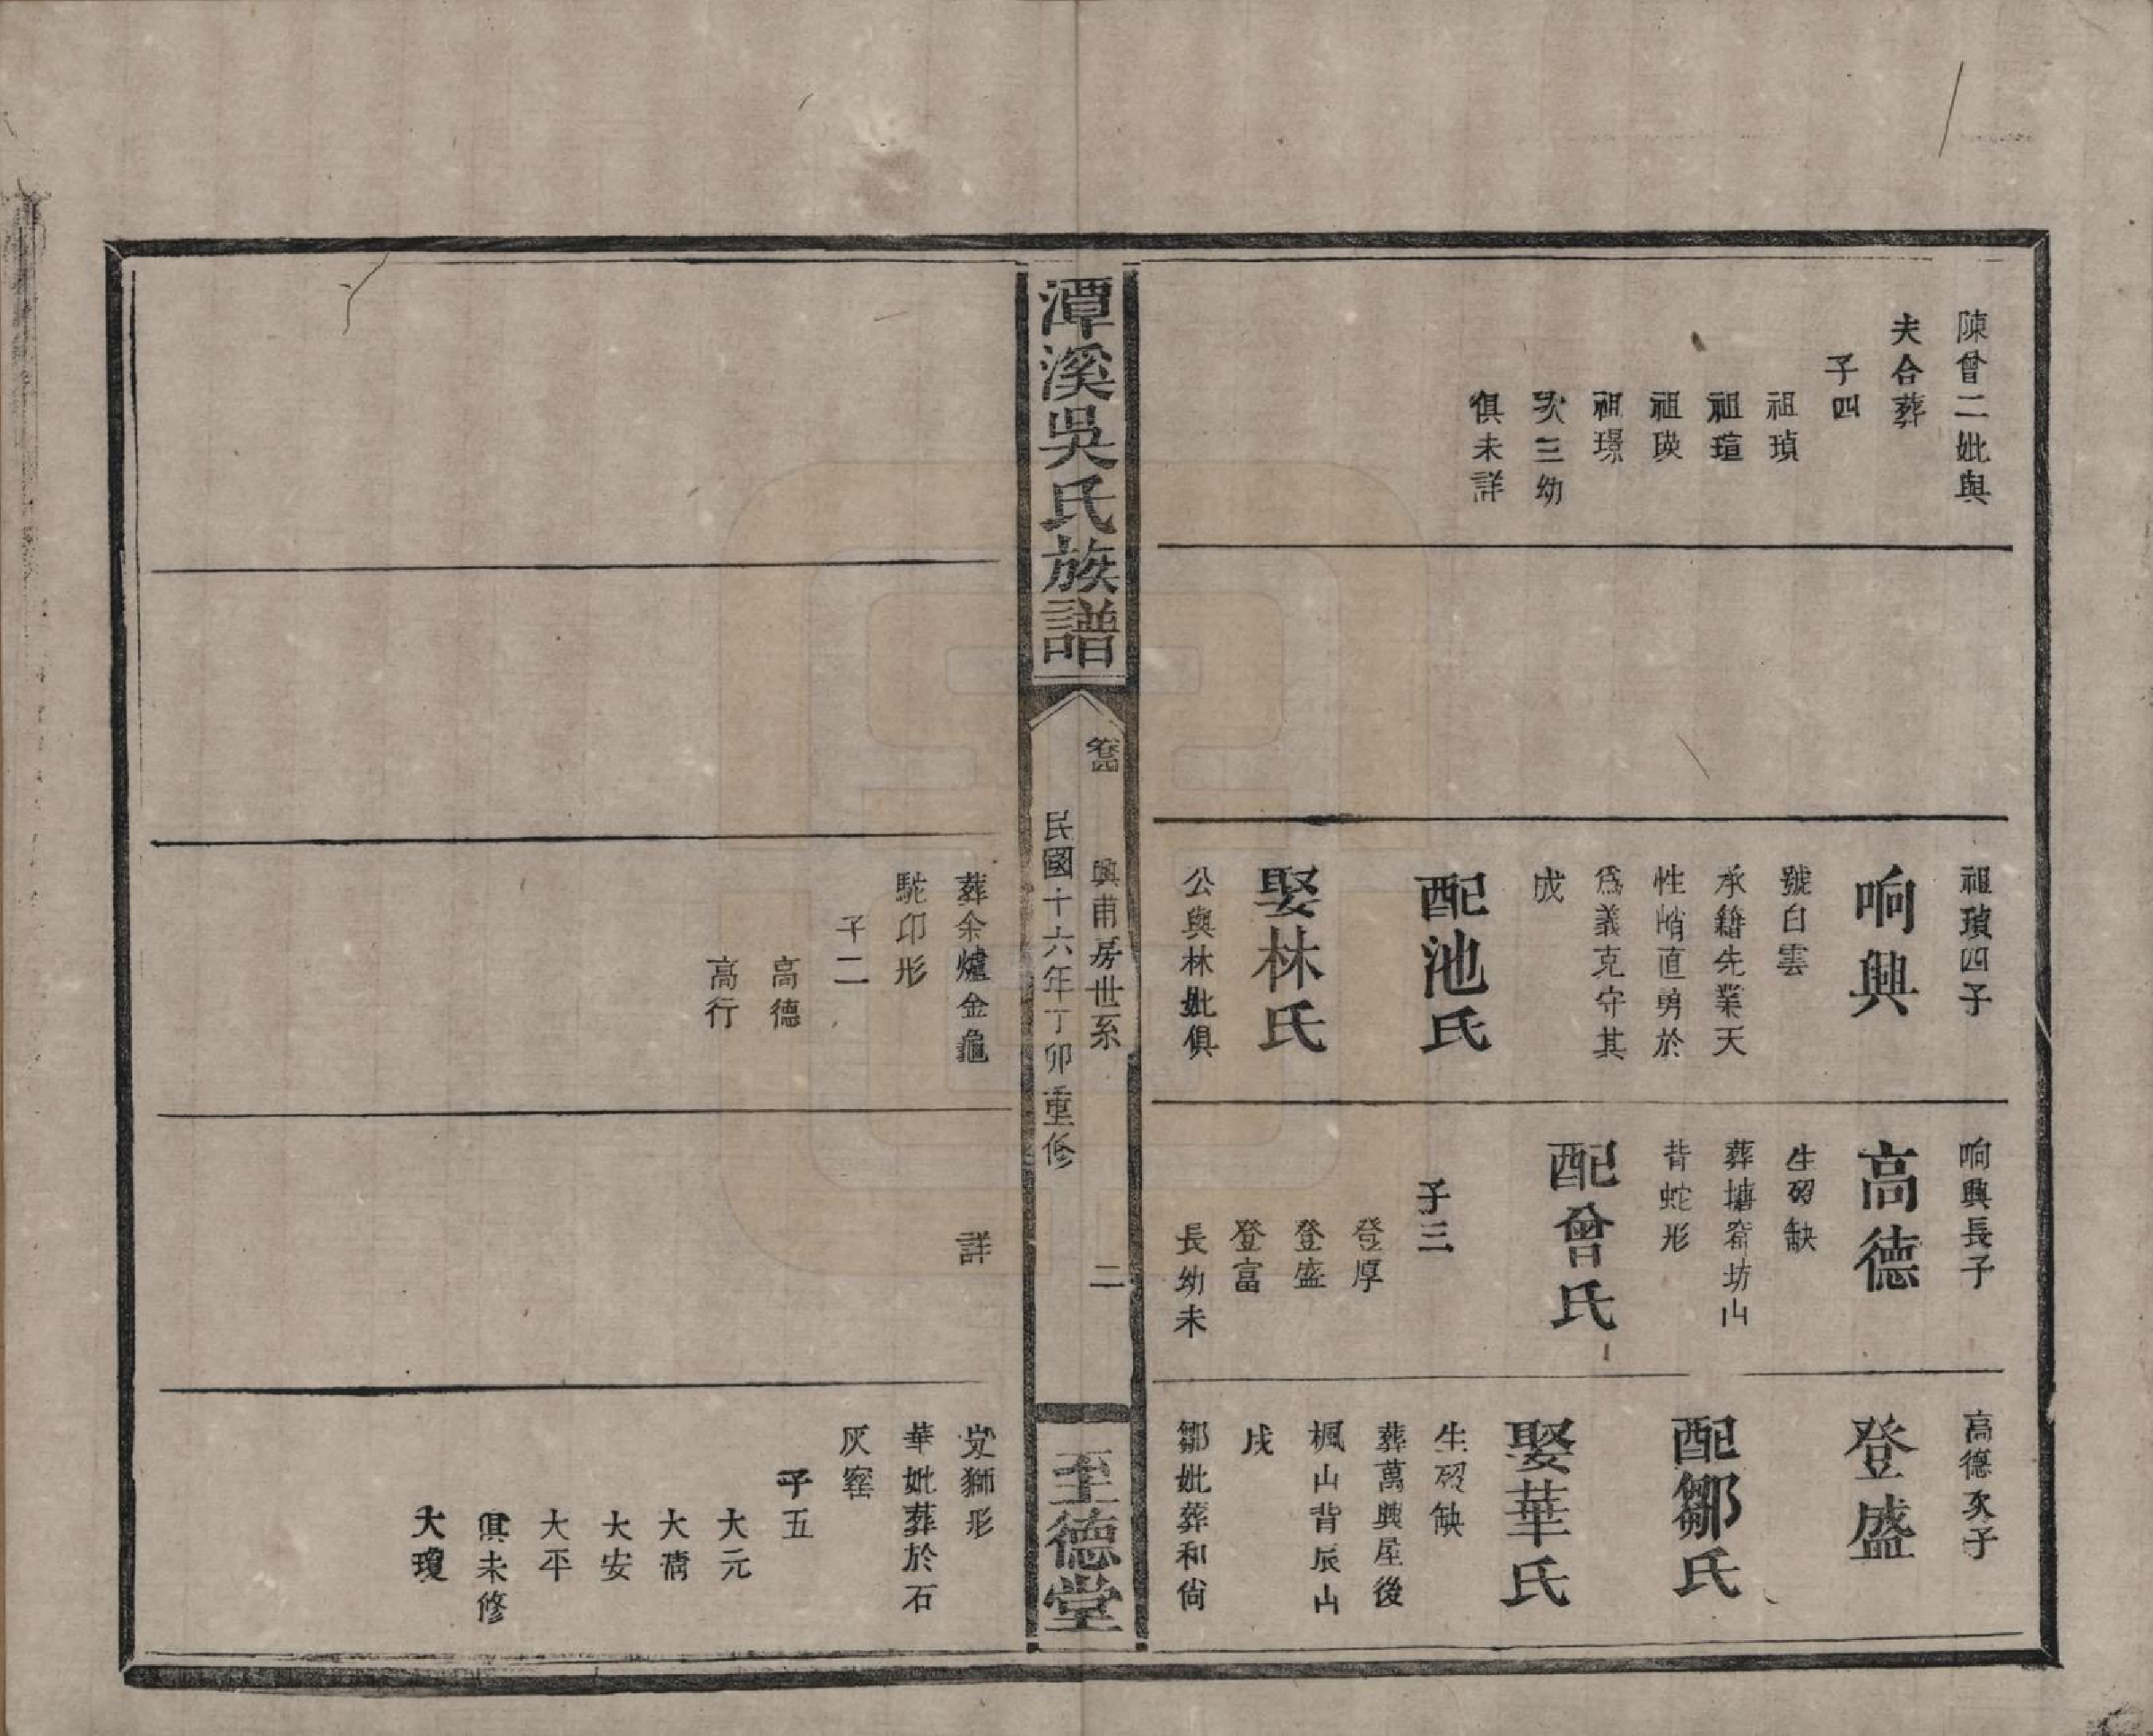 陳曾二妣與
夫合葬
子四
祖瑱
祖瑄
祖瑛
祖璟
次三幼
俱未詳
祖瑱四子
响興
號白雲
承籍先業天
性峭直勇於
為義克守其
成
配池氏
娶林氏
公與林妣俱
响興長子
高德
生歿缺
葬塘窑坊山
背蛇形
配曾氏
子三
登厚
登盛
登富
長幼未
高德次子
登盛
配鄒氏
娶華氏
生歿缺
葬萬興屋後
楓山背辰山
戌
鄒妣葬和尙
潭溪吳氏族譜
卷四
興甫房世系
二
民國十六年丁卯重修
至德堂
葬余爐金龜
駝印形
子二
高德
高行
詳
獅形
華妣葬於石
灰窰
子五
大元
大

大安
大平
俱未修
大瓊